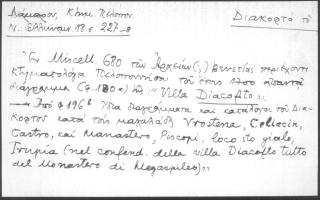 Λάμπρου, Κτημ. Πελοπον.
Ν. Ἑλληνομ. 18ς. 227-8
Διακοφτό τό
"Ἐν Miscell. 680 τῶν Ἀρχείων(;) Βενετίας περιέχοντι
κτηματολόγια Πελοποννήσου τοῦ ἔτους 1700 ἀπαντᾷ
διάγραμμα (φ. 180α) τῆς "Villa Diacofto",,
Ἀπό φ 196β διαγράμματα καί κατάλογοι τοῦ Δια-
κοφτοῦ κατά τούς μαχαλάδες Vrostena, Celiocin,
Castro, cai Manastero, Piscopi, loco sto gialo,
Trupia (nel confend. della villa Diacofto tutto
del Monastero di Megaspileo),,